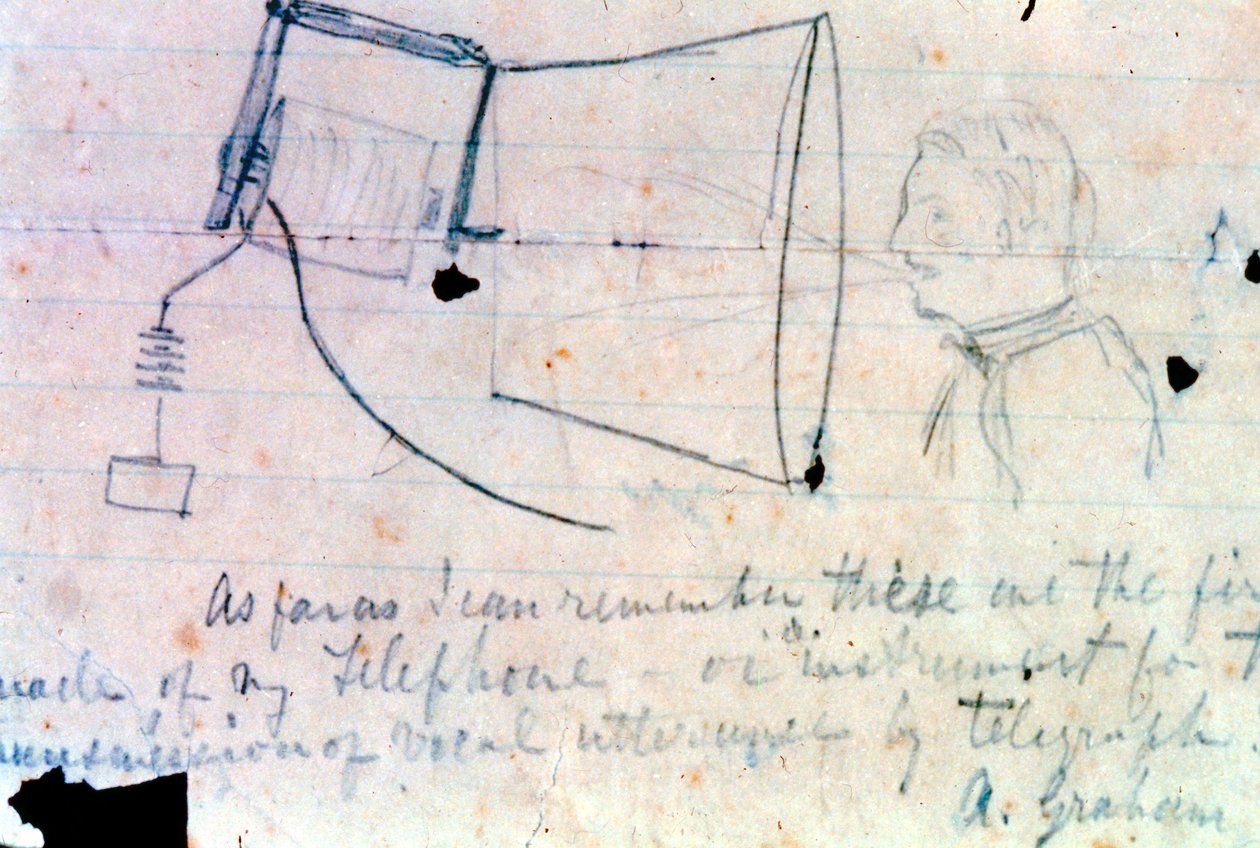 As far as I can remember these are the fir
made of my telephone - or instrument for t
ansmission of vocal utterance by telegraph
A. Graham